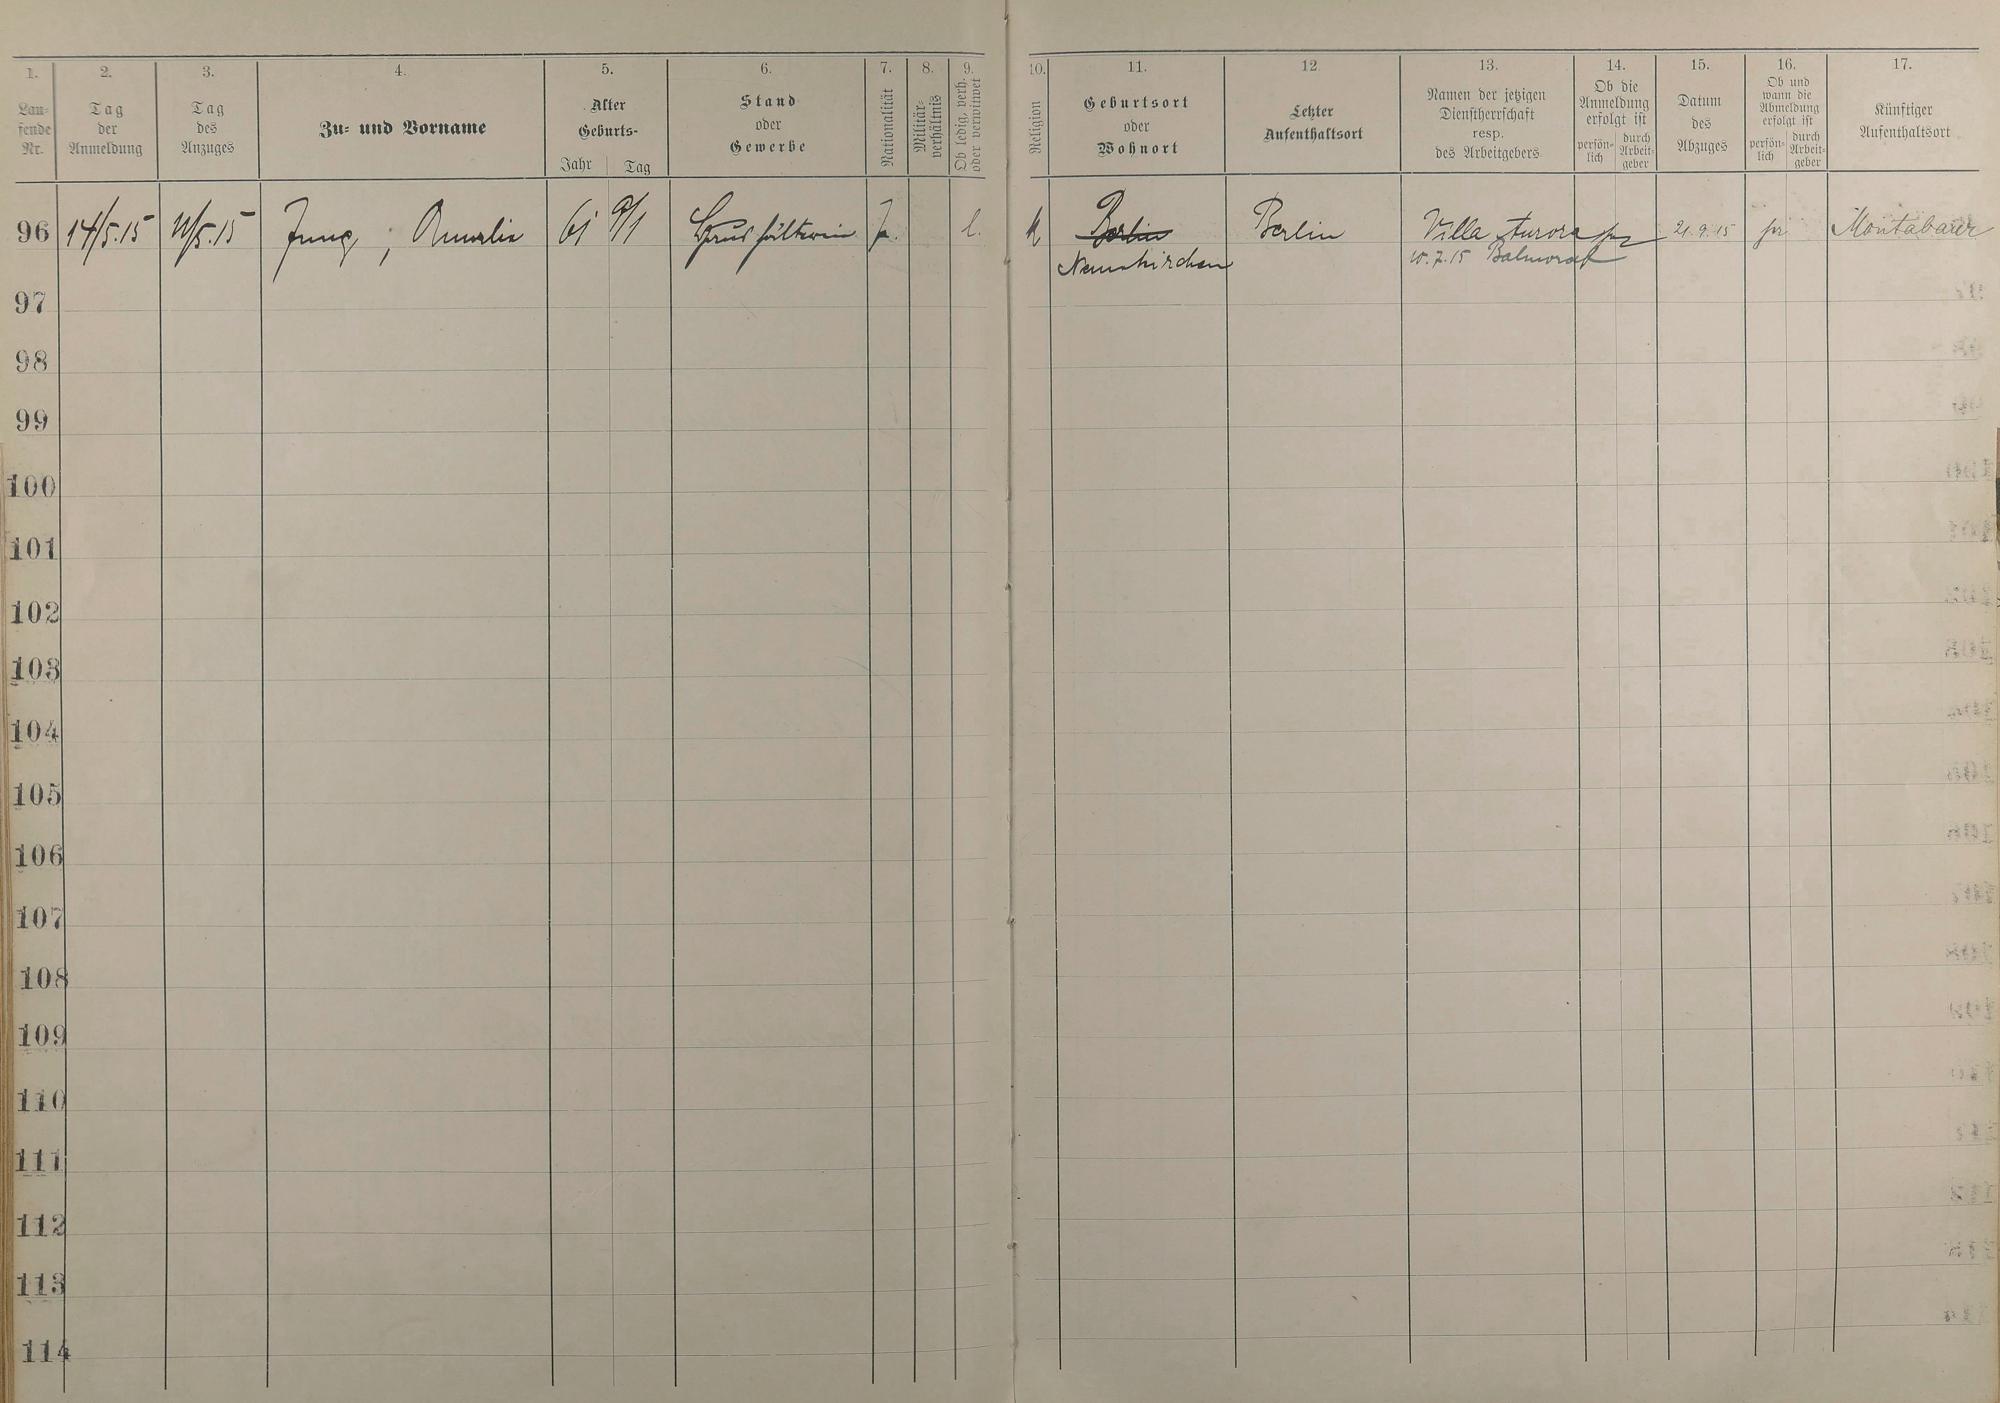 1. 2. 3. 4. 5. 6. 7. 8. 9. 10. 11. 12 13. 14. 15. 16. 17.
Lau-
fende
Nr.
Tag
der
Anmeldung
Tag
des
Anzuges
Zu- und Vorname
Alter
Geburts-
Jahr Tag
Stand
oder
Gewerbe
Nationalität
Militär-
verhältnis
Ob ledig, verh.
oder verwitwet
Religion
Geburtsort
oder
Wohnort
Letzter
Aufenthaltsort
Namen der jetzigen
Dienstherrschaft
resp.
des Arbeitgebers
Ob die
Anmeldung
erfolgt ist
persön-
lich
durch
Arbeit-
geber
Datum
des
Abzuges
Ob und
wann die
Abmeldung
erfolgt ist
persön-
lich
durch
Arbeit-
geber
Künftiger
Aufenthaltsort
96 14/5.15 11/5.15 Jung, Amalie 61 9/1 Haushälterin l. k Berlin Berlin Villa Aurora 21.9.15 Montabaur
Neunkirchen 10.7.15 Balmoral
97
98
99
100
101
102
103
104
105
106
107
108
109
110
111
112
113
114